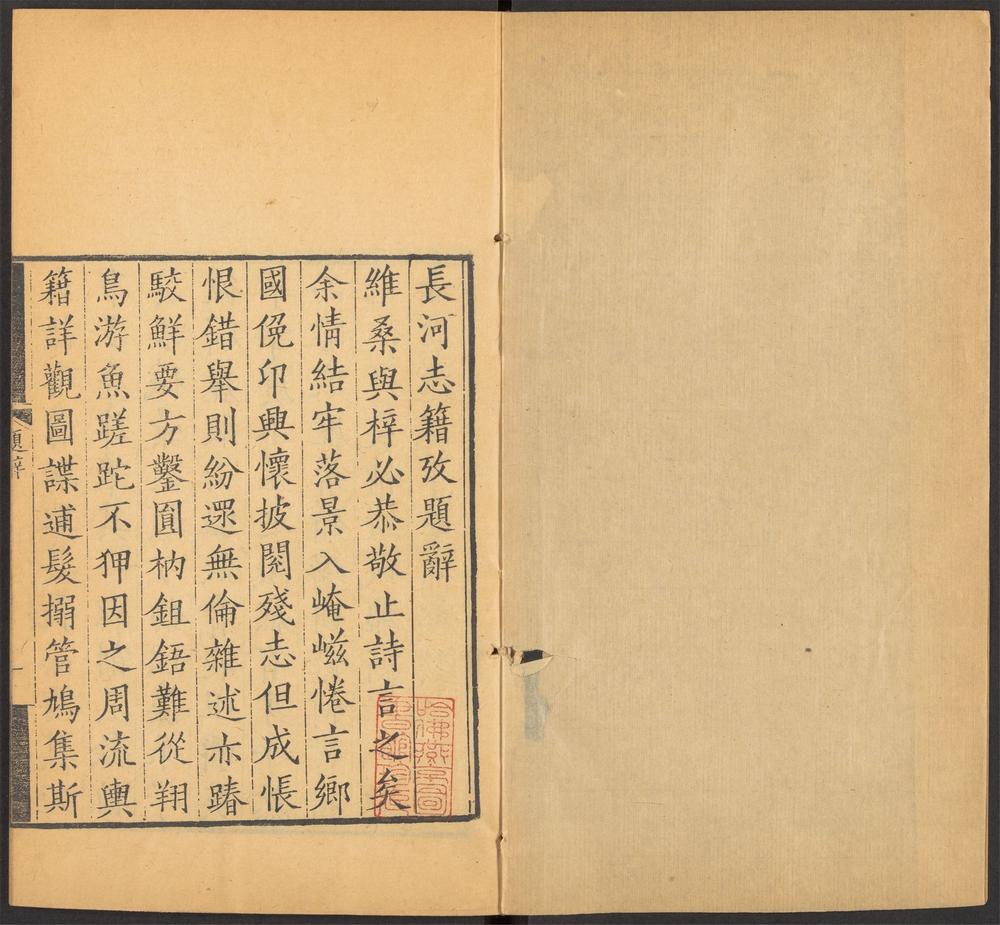 長河志籍攷題辭
維桑與梓必恭敬止詩言之矣
余情結牢落景入崦嵫惓言鄉
國俛卬興懷披閱殘志但成悵
恨錯舉則紛遝無倫雜述亦踳
駮鮮要方鑿圓枘鉏鋙難從翔
鳥游魚蹉跎不狎因之周流輿
籍詳觀圖諜逋髮搦管鳩集斯
題辭
一
哈佛燕京圖書館